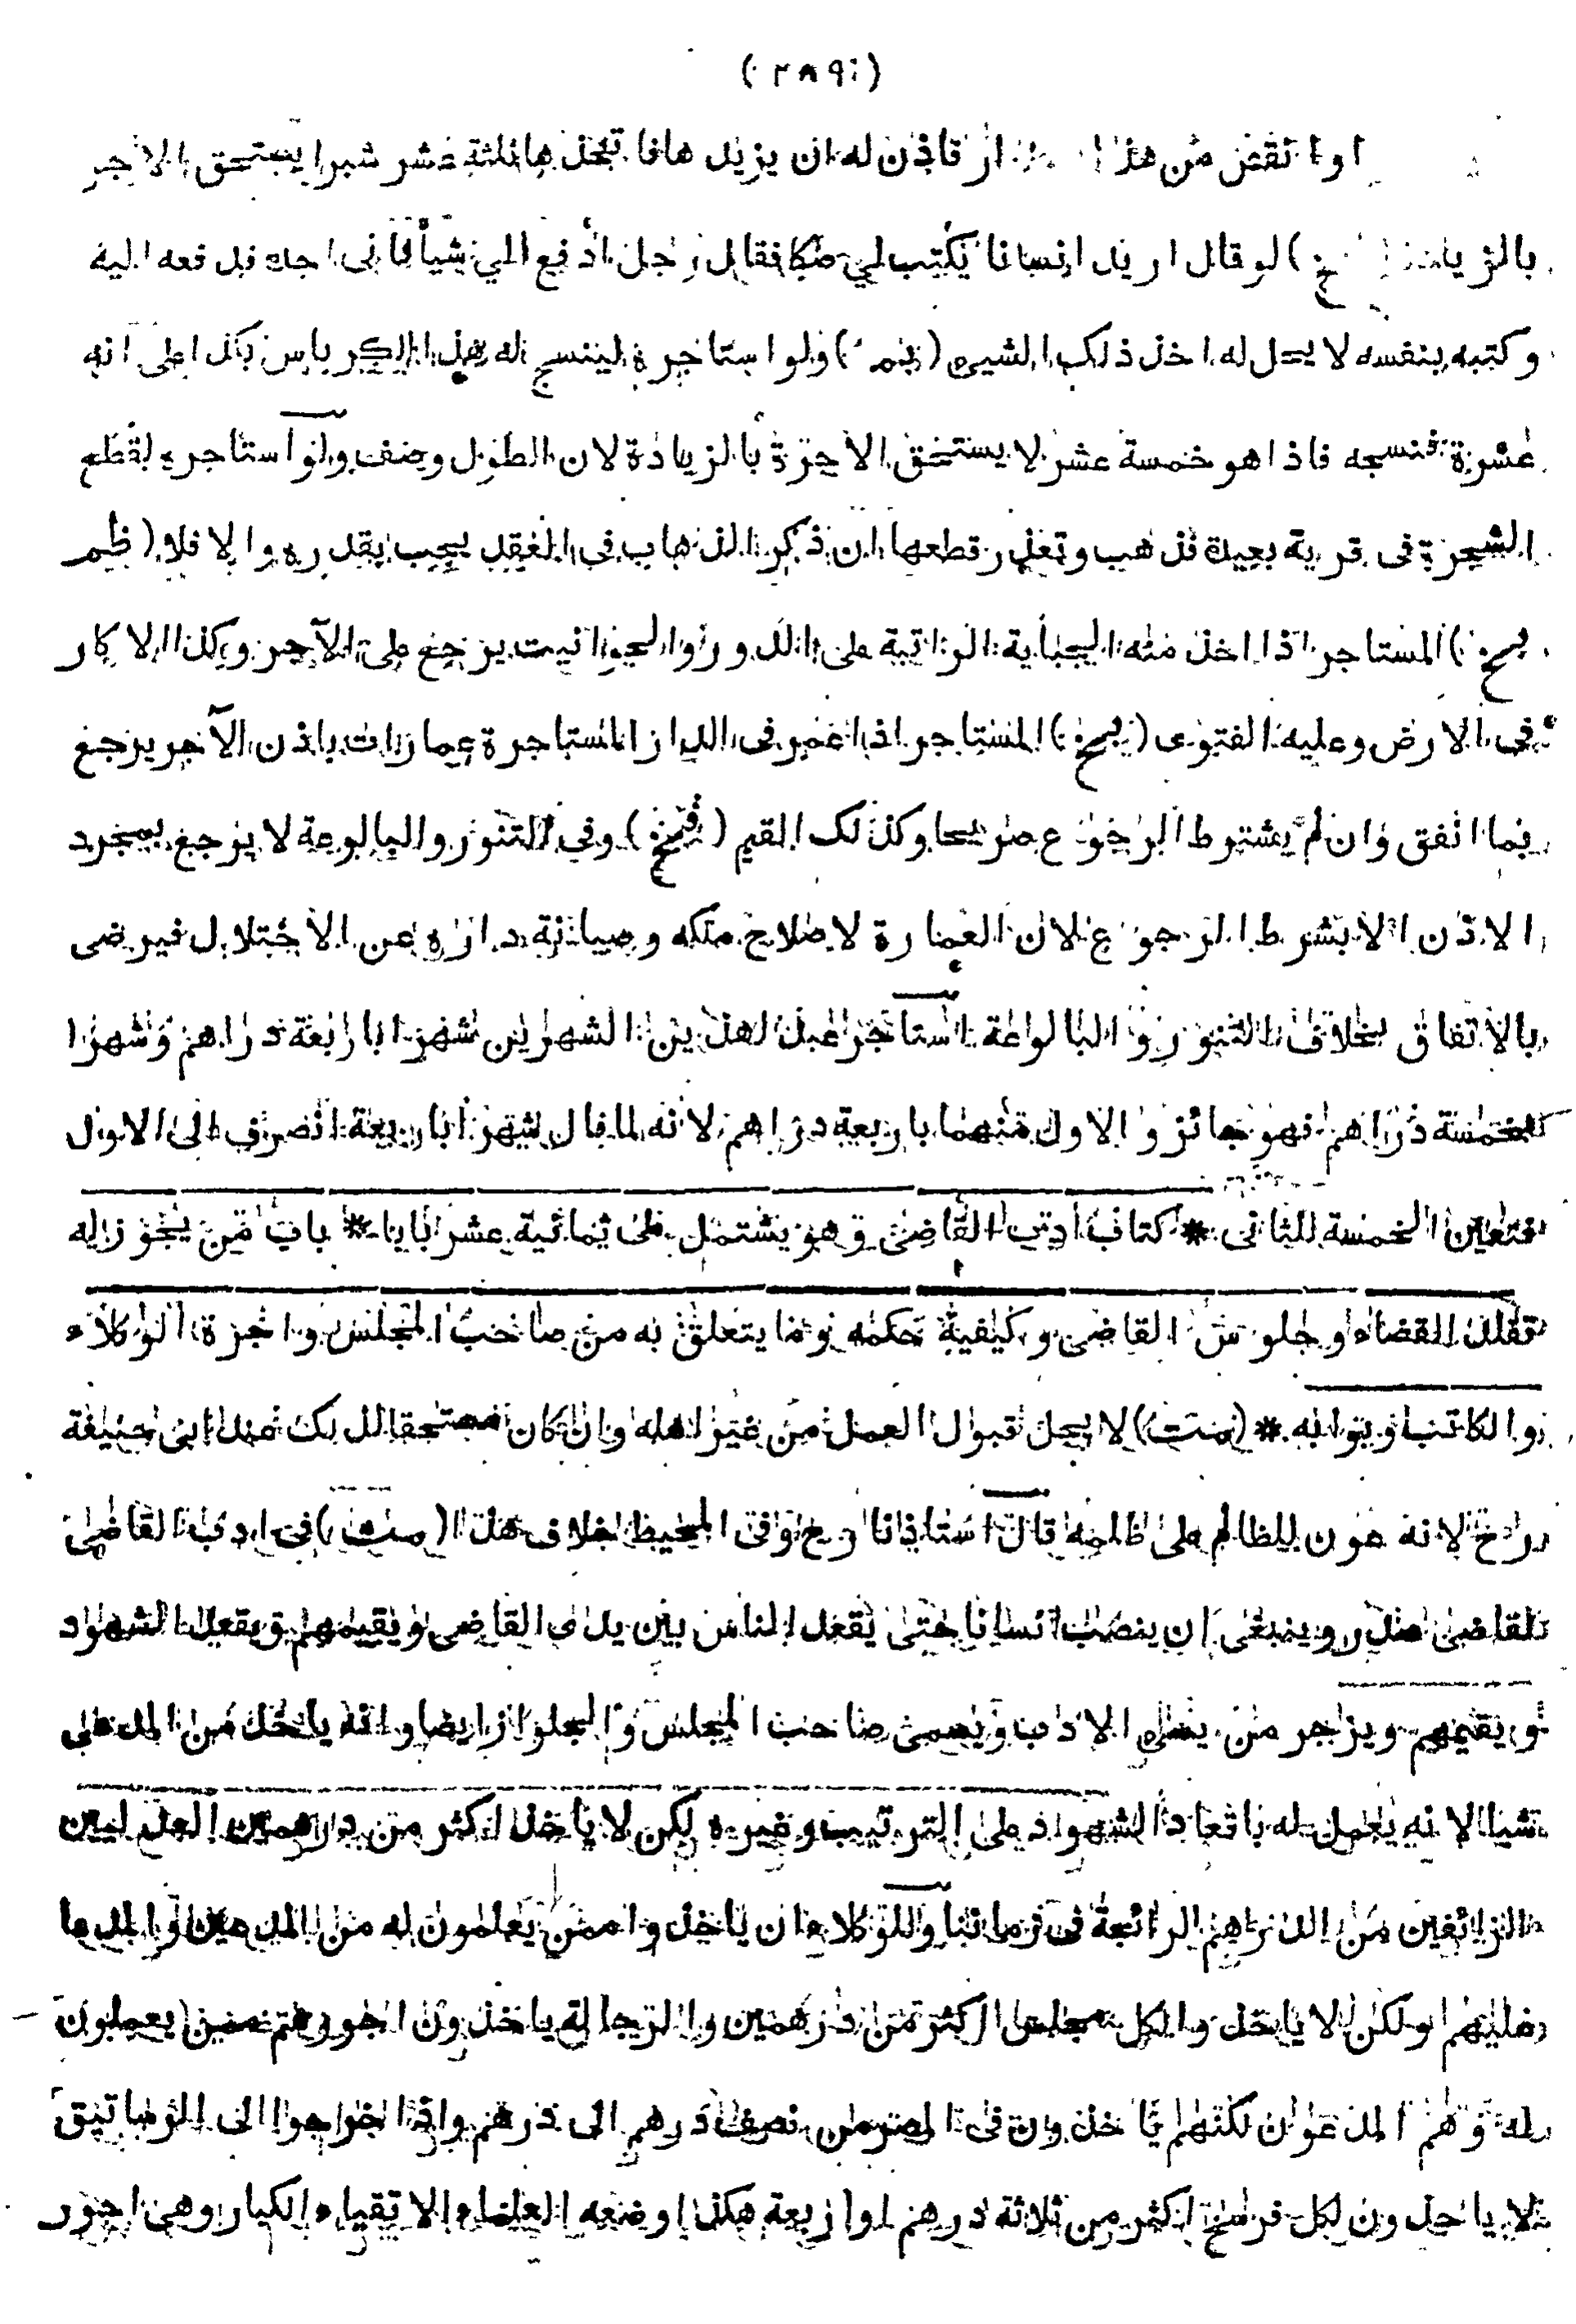 (٢٨٩)
او انقض من هذا فاذن له ان يزيد هافا تخذ ها ثلثة عشر شبرا يستحق الاجر
بالزيادة ( خ ) لو قال اريد انسانا يكتب لي صكا فقال رجل ادفع الي شيأ فاني اجده فدفعه اليه
وكتبه بنفسه لا يحل له اخذ ذلك الشيئ ( ) ولو استاجره لينسج له هذا الكرباس بكذا على انه
عشرة فنسجه فاذا هو خمسة عشر لا يستحق الاجرة بالزيادة لان الطول وصف ولو استاجره لقطع
الشجرة فى قرية بعيدة فذهب وتعذر قطعها ان ذكر الذهاب فى العقد يجب بقدره والا فلا ( ظم
) المستاجر اذا اخذ منه الجباية الراتبة على الدور والحوانيت يرجع على الآجر وكذا الاكار
فى الارض وعليه الفتوى ( ) المستاجر اذا عمر فى الدار المستاجرة عمارات باذن الآجر يرجع
بما انفق وان لم يشترط الرجوع صريحا وكذلك القيم ( ) وفى التنور والبالوعة لا يرجع بمجرد
الاذن الا بشرط الرجوع لان العمارة لاصلاح ملكه وصيانة داره عن الاختلال فيرضى
بالاتفاق بخلاف التنور والبالوعة استاجر عبدا لهذين الشهرين شهرا باربعة دراهم وشهرا
بخمسة دراهم فهو جائز والاول منهما باربعة دراهم لانه لما قال شهرا باربعة انصرف الى الاول
فتعين الخمسة للثانى * كتاب ادب القاضى وهو يشتمل على ثمانية عشر بابا * باب من يجوز له
تقلد القضاء وجلوس القاضى وكيفية حكمه وما يتعلق به من صاحب المجلس واجرة الوكلاء
والكاتب وبوابه * ( ) لا يحل قبول العمل من غير اهله وان كان مستحقا لذلك عند ابى حنيفة
رح لانه عون للظالم على ظلمه قال استاذنا رح وفى المحيط خلاف هذا ( ) فى ادب القاضى
للقاضى وينبغى ان ينصب انسانا حتى يقعد الناس بين يدى القاضى ويقيمهم ويقعد الشهود
ويقيمهم ويزجر من يسئ الادب ويسمى صاحب المجلس والجلواز ايضا وانه ياخذ من المدعى
شيئا لانه يعمل له باقعاد الشهود على الترتيب وغيره لكن لا ياخذ اكثر من درهمين العدليين
الزائفين من الدراهم الرائجة فى زماننا وللوكلاء ان ياخذوا ممن يعملون له من المدعين والمدعا
عليهم ولكن لا ياخذوا لكل مجلس اكثر من درهمين والرجالة ياخذون اجورهم ممن يعملون
له وهم المدعون لكنهم ياخذون فى المصر من نصف درهم الى درهم واذا خرجوا الى الرساتيق
لا ياخذون لكل فرسخ اكثر من ثلاثة دراهم او اربعة هكذا وضعه العلماء الاتقياء الكبار وهى اجور